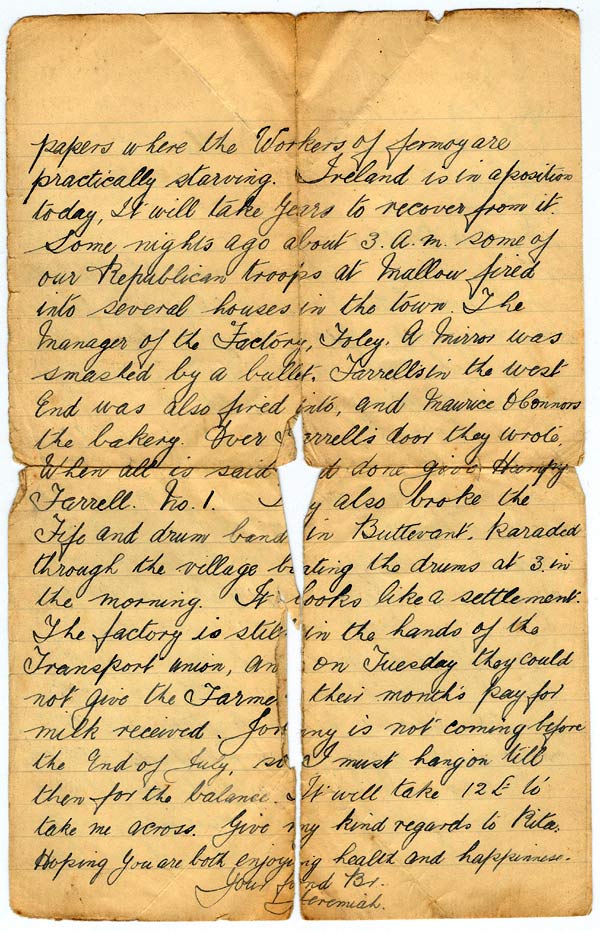 papers where the Workers of fermoy are
practically starving. Ireland is in a position
today, It will take years to recover from it.
Some nights ago about 3. A.m. some of
our Republican troops at Mallow fired
into several houses in the town. The
Manager of the Factory, Foley. A Mirror was
smashed by a bullet. Farrells in the west
End was also fired into, and Maurice O'Connors
the bakery. Over rrells door they wrote,
When all is said d done give Humpy
Farrell. No. 1. y also broke the
Fife and drum band in Buttevant. Paraded
through the village b ating the drums at 3. in
the morning. It looks like a settlement.
The factory is still in the hands of the
Transport union, an on Tuesday they could
not give the Farme their month's pay for
milk received. ny is not coming before
the End of July, so I must hang on till
then for the balance. It will take 12£ to
take me across. Give my kind regards to Rita.
Hoping you are both enjoying health and happinese.
Your fond Br.
Jeremiah.